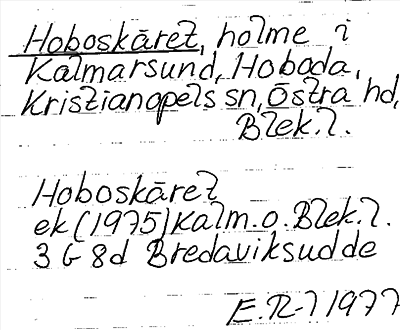 Hoboskäret, holme i
Kalmarsund, Hoboda,
Kristianopels sn, Östra hd,
Blek. l.
Hoboskäret
ek (1975) Kalm. o. Blek. l.
3 G 8d Bredaviksudde
E. R-l 1977